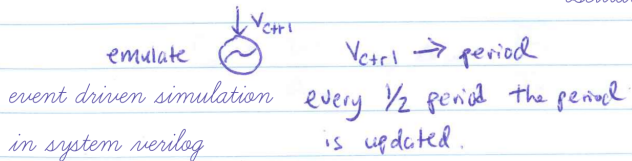 Vctrl
emulate Vctrl → period
event driven simulation every 1/2 period the period
in system verilog is updated.